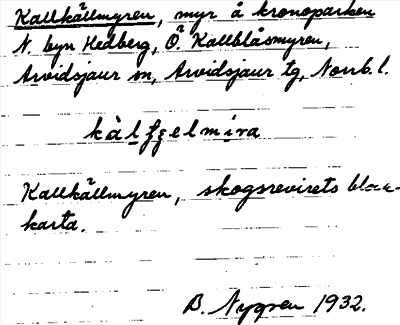 Kallkällmyren, myr å kronoparken
N. byn Hedberg, Ö. Kallblåsmyren,
Arvidsjaur sn, Arvidsjaur tg, Norrb. l.
Kallkällmyren, skogsrevirets
karta.
B. Nygren 1932.